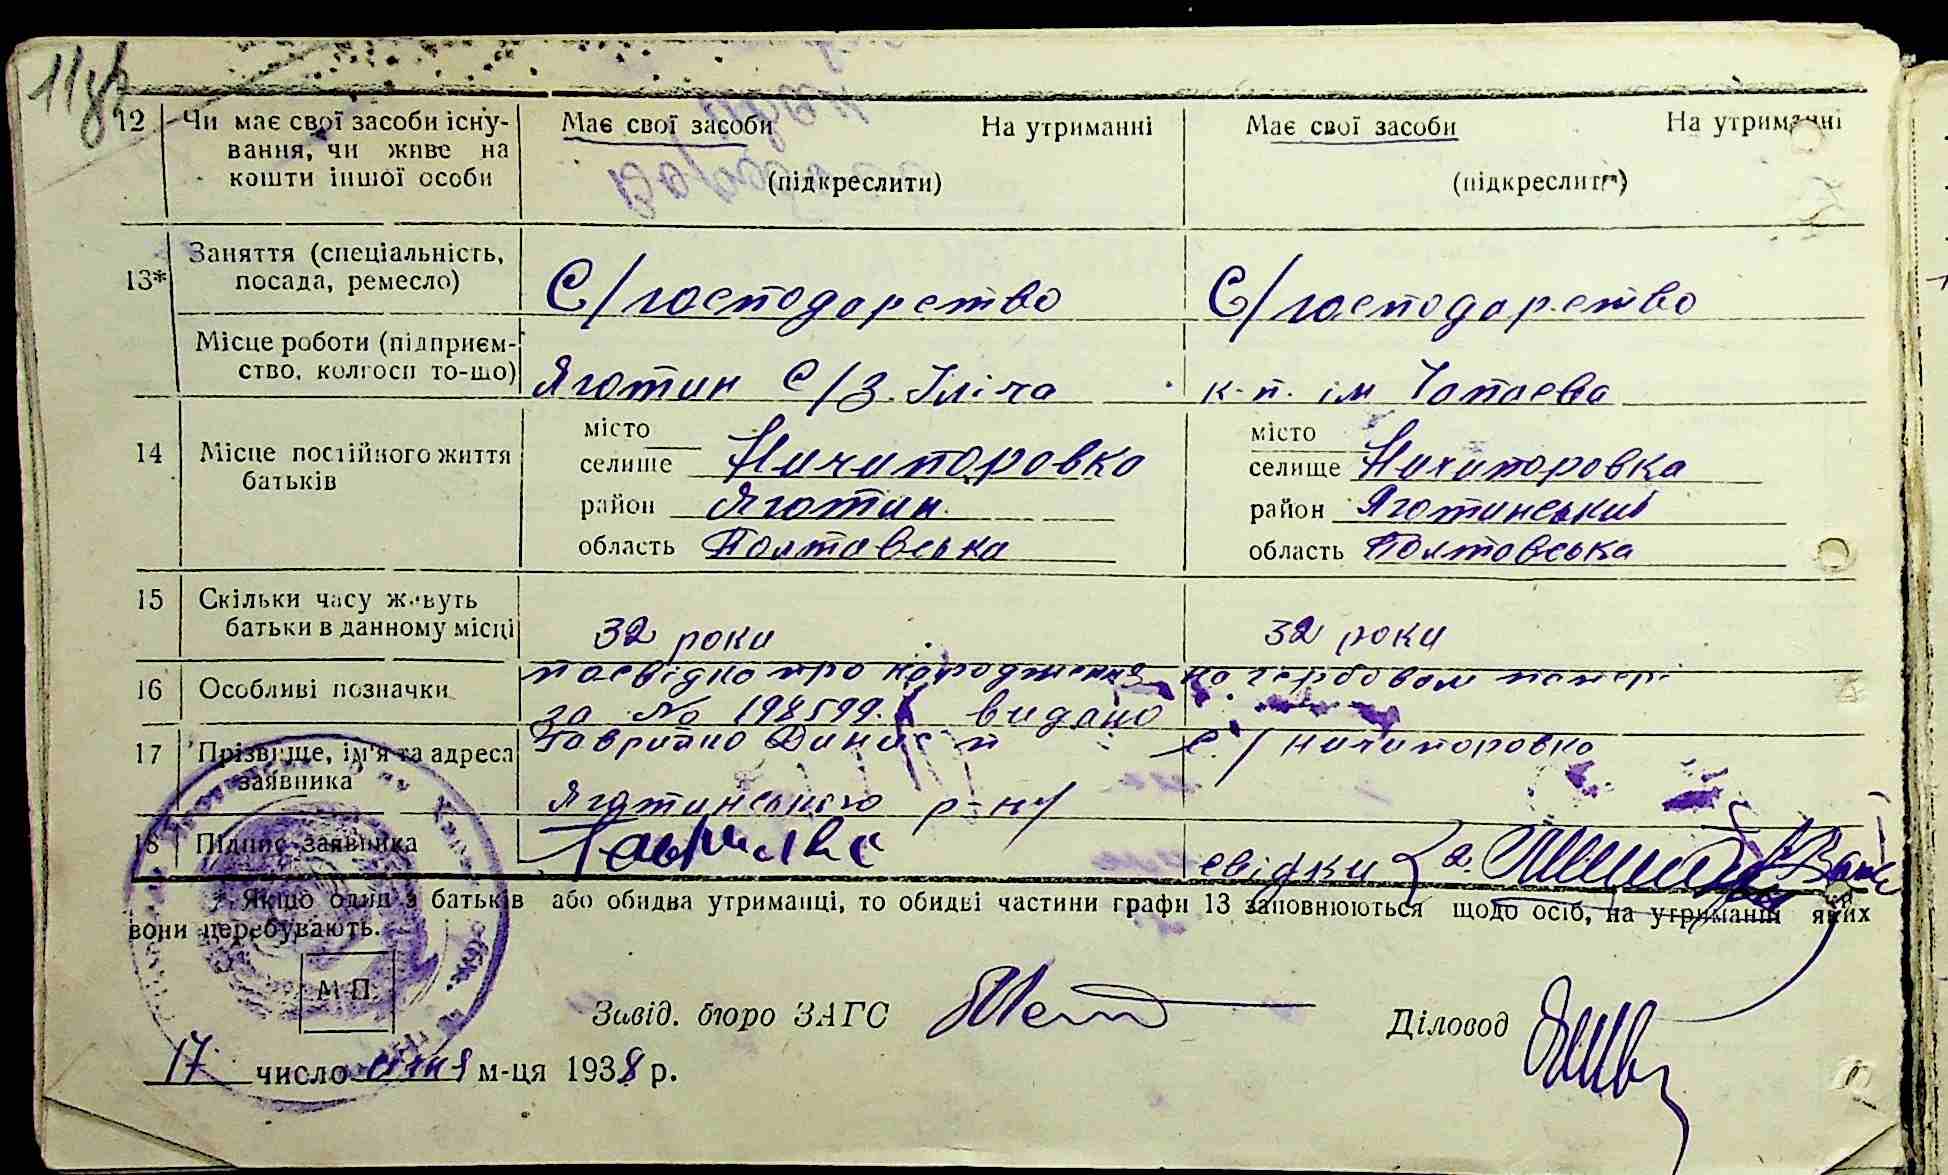 118
12 Чи має свої засоби існу- Має свої засоби На утриманні Має свої засоби На утриманні
вання, чи живе на
кошти іншої особи (підкреслити) (підкреслити)
Заняття (спеціальність,
13* посада, ремесло) С/господарство С/господарство
Місце роботи (підприєм-
ство, колгосп то-що) Яготин С/З. Ілліча к-п. ім Чапаєва
місто місто
14 Місце постійного життя селище Ничипоровка селище Ничипоровка
батьків район Яготин район Яготинський
область Полтавська область Полтавська
15 Скільки часу живуть
батьки в данному місці 32 роки 32 роки
посвідка про народження на гербовом папері
16 Особливі позначки
за № 198599. видано
17 Прізвище, ім'я та адреса Гаврилко Динис п с/ Ничипоровка
заявника
Яготинського р-ну
18 Підпис заявника Гаврилко свідки
Якщо один з батьків або обидва утриманці, то обидві частини графи 13 заповнюються щодо осіб, на утриманні яких
вони перебувають.
М П
Завід. бюро ЗАГС Діловод
17 число м-ця 1938 р.